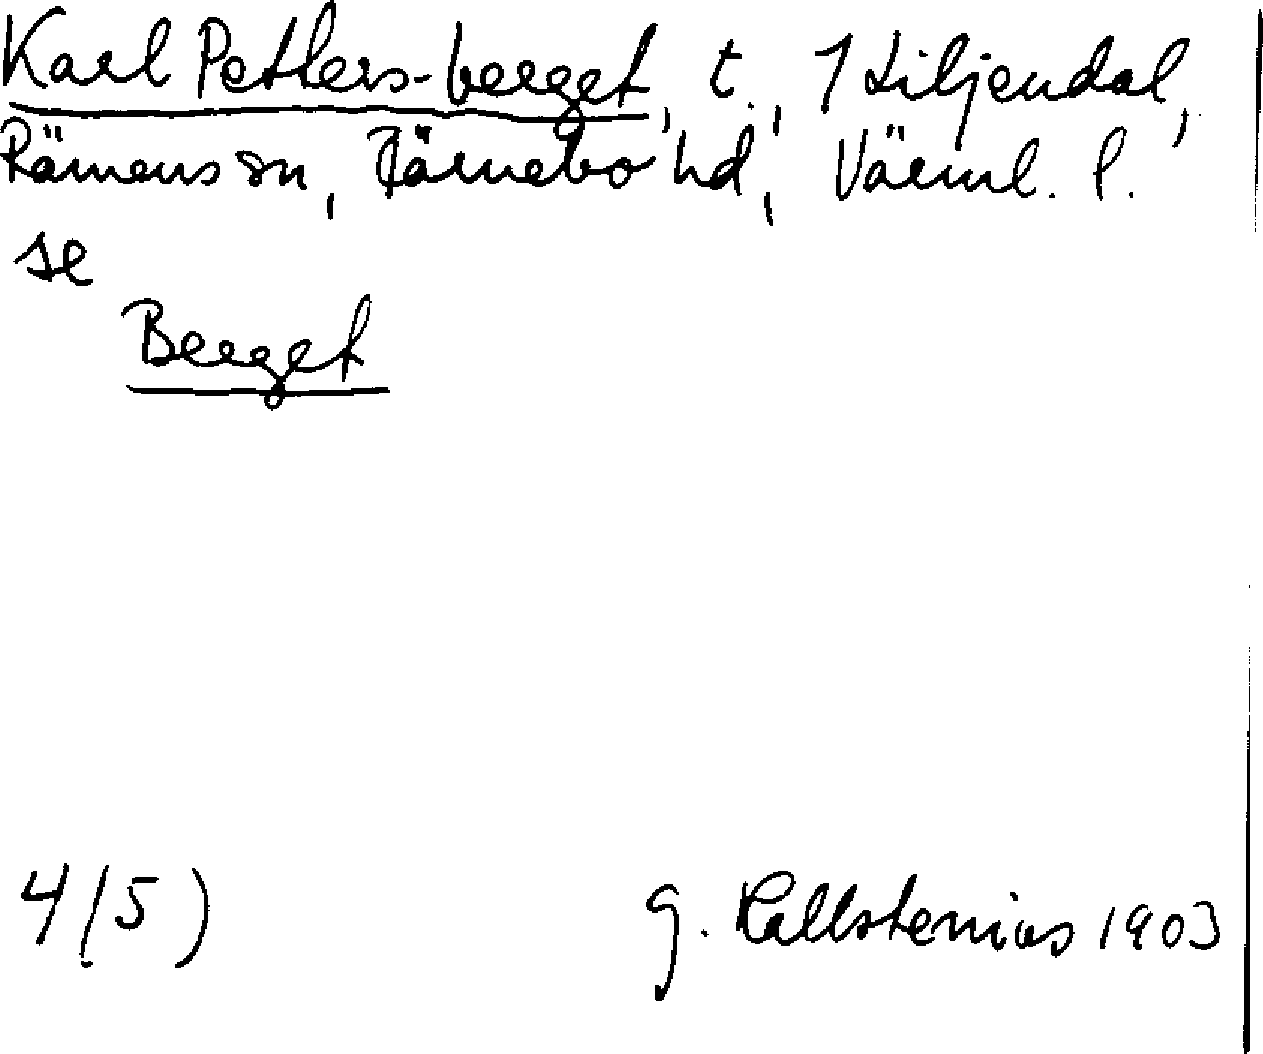 Karl Petters-berget, t., 1 Liljendal,
Rämens sn, Färnebo hd, Värml. l.
se
Berget
4(5)
G. Kallstenius 1903